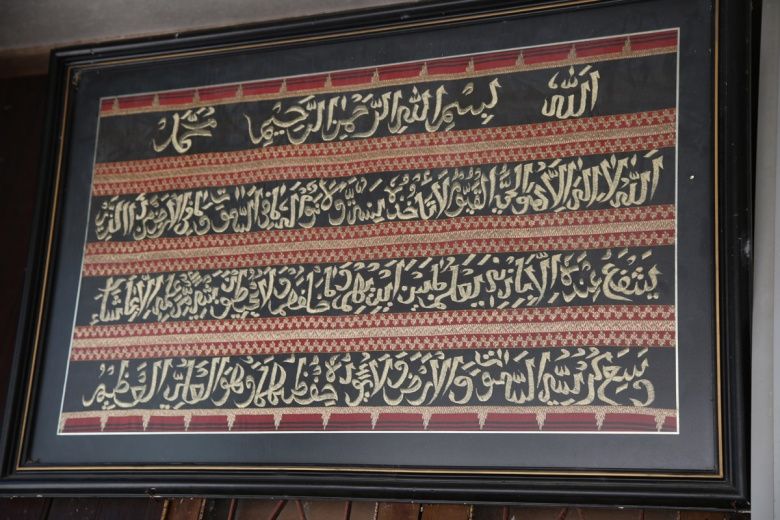 الله بِسْمِ اللهِ الرَّحْمٰنِ الرَّحِيْمِ محمد
اَللهُ لَا اِلٰهَ اِلَّا هُوَ الْحَيُّ الْقَيُّوْمُ لَا تَأْخُذُهُ سِنَةٌ وَلَا نَوْمٌ لَهُ مَا فِى السَّمٰوٰتِ وَمَا فِى الْاَرْضِ مَنْ ذَا الَّذِيْ
يَشْفَعُ عِنْدَهُ اِلَّا بِاِذْنِهِ يَعْلَمُ مَا بَيْنَ اَيْدِيْهِمْ وَمَا خَلْفَهُمْ وَلَا يُحِيْطُوْنَ بِشَيْءٍ مِنْ عِلْمِهِ اِلَّا بِمَا شَاءَ
وَسِعَ كُرْسِيُّهُ السَّمٰوٰتِ وَالْاَرْضَ وَلَا يَئُوْدُهُ حِفْظُهُمَا وَهُوَ الْعَلِيُّ الْعَظِيْمُ